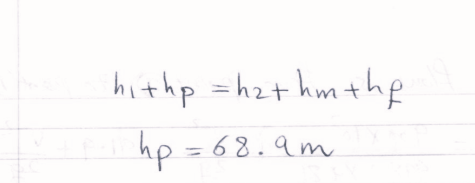 h₁+hp = h₂+ hm + hf
hp = 68.9m